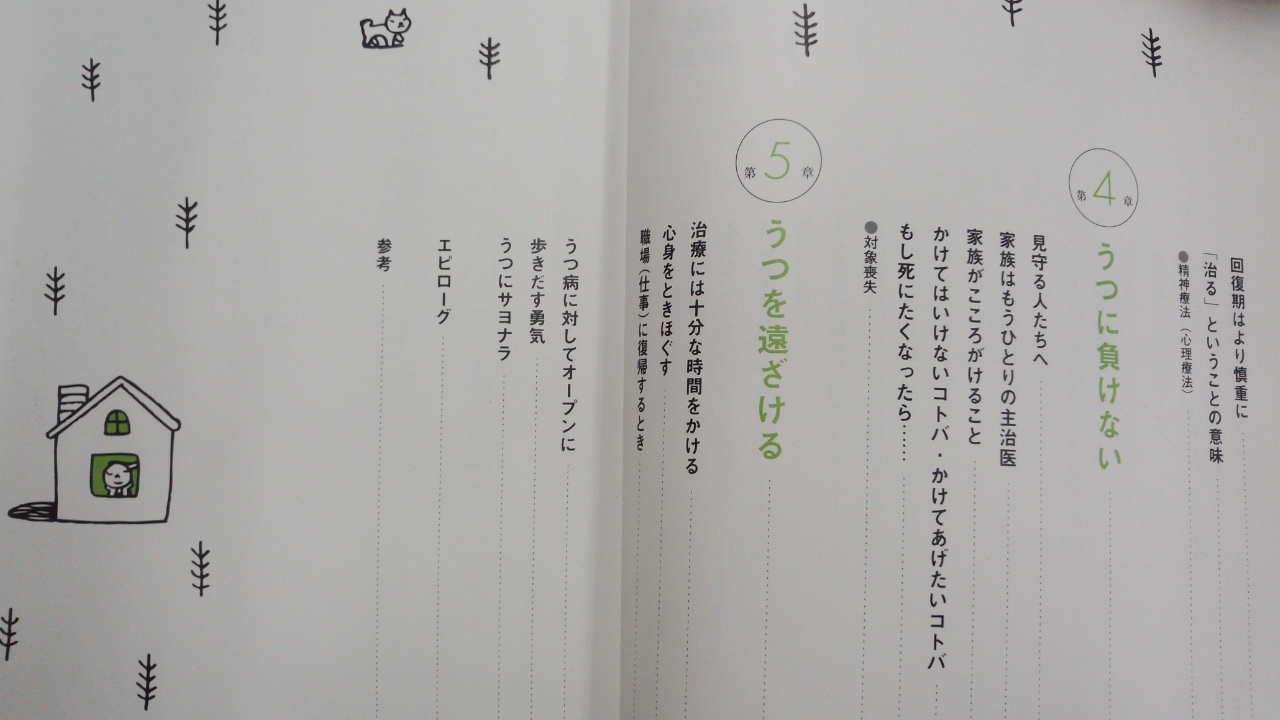 回復期はより慎重に
「治る」ということの意味
●精神療法（心理療法）
第4章
うつに負けない
見守る人たちへ
家族はもうひとりの主治医
家族がこころがけること
かけてはいけないコトバ・かけてあげたいコトバ
もし死にたくなったら……
●対象喪失
第5章
うつを遠ざける
治療には十分な時間をかける
心身をときほぐす
職場（仕事）に復帰するとき
うつ病に対してオープンに
歩きだす勇気
うつにサヨナラ
エピローグ
参考